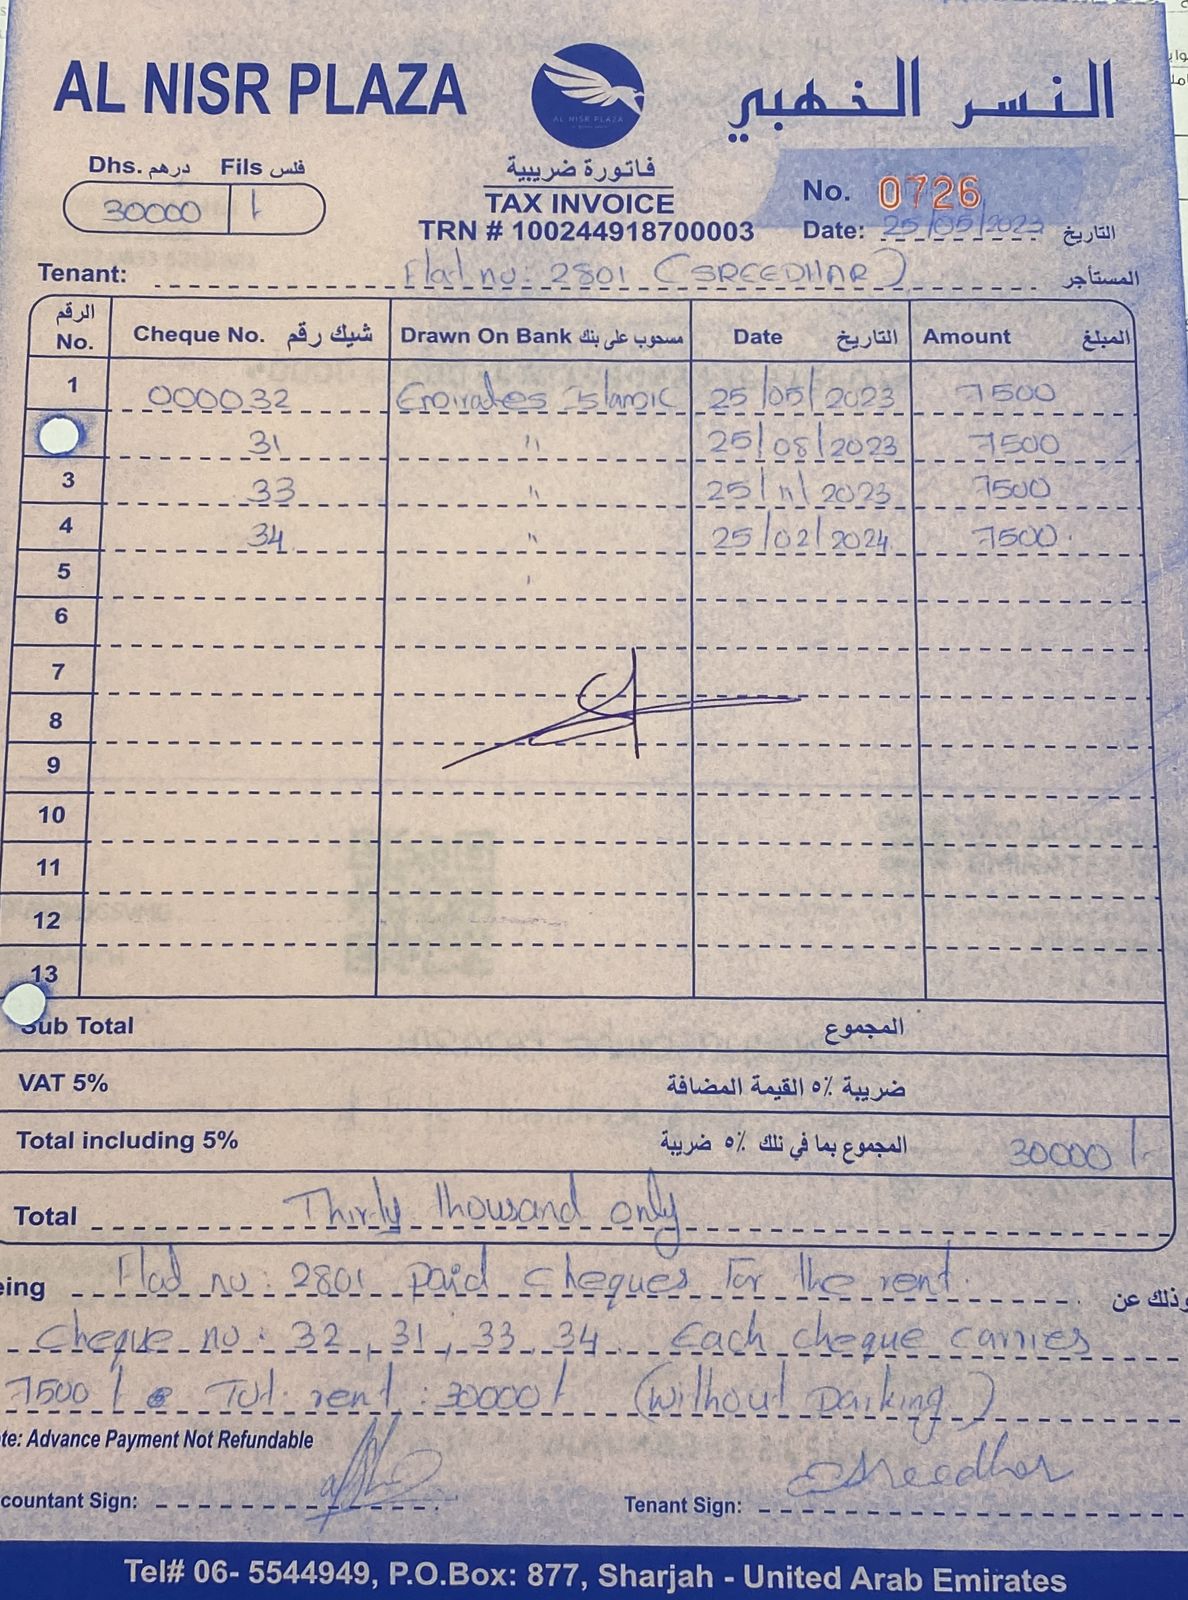 AL NISR PLAZA النسر الذهبي
AL NISR PLAZA
Dhs. درهم Fils فلس
30000 /
فاتورة ضريبية
TAX INVOICE
TRN # 100244918700003
No. 0726
Date: 25/05/2023 التاريخ
Tenant: Flat no: 2801 (SREEDHAR) المستأجر
الرقم No. Cheque No. شيك رقم Drawn On Bank مسحوب على بنك Date التاريخ Amount المبلغ
1 000032 Emirates Islamic 25/05/2023 7500
31 " 25/08/2023 7500
3 33 " 25/11/2023 7500
4 34 " 25/02/2024 7500
5
6
7
8
9
10
11
12
13
Sub Total المجموع
VAT 5% ضريبة ٥٪ القيمة المضافة
Total including 5% المجموع بما في تلك ٥٪ ضريبة 30000/-
Total Thirty thousand only
eing Flat no: 2801 paid cheques for the rent. وذلك عن
Cheque no: 32, 31, 33, 34. Each cheque carries
7500/- Tot. rent: 30000/- (Without parking)
te: Advance Payment Not Refundable
countant Sign: Tenant Sign: Sreedhar
Tel# 06- 5544949, P.O.Box: 877, Sharjah - United Arab Emirates